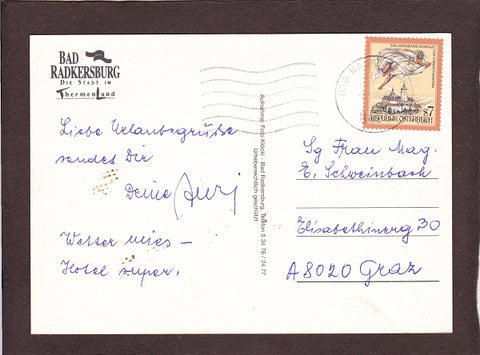 BAD
RADKERSBURG
DIE STADT IM
ThermenLand
Liebe Urlaubsgrüße
sendet Dir
Deine
Wetter mies –
Hotel super.
Aufnahme: Foto Klöckl - Bad Radkersburg, Telefon 0 34 76 / 24 77
Urheberrechtlich geschützt
BAD RADK
S7
REPUBLIK ÖSTERREICH
Sg Frau Mag.
E. Schweinbach
Elisabethinerg 30
A8020 Graz